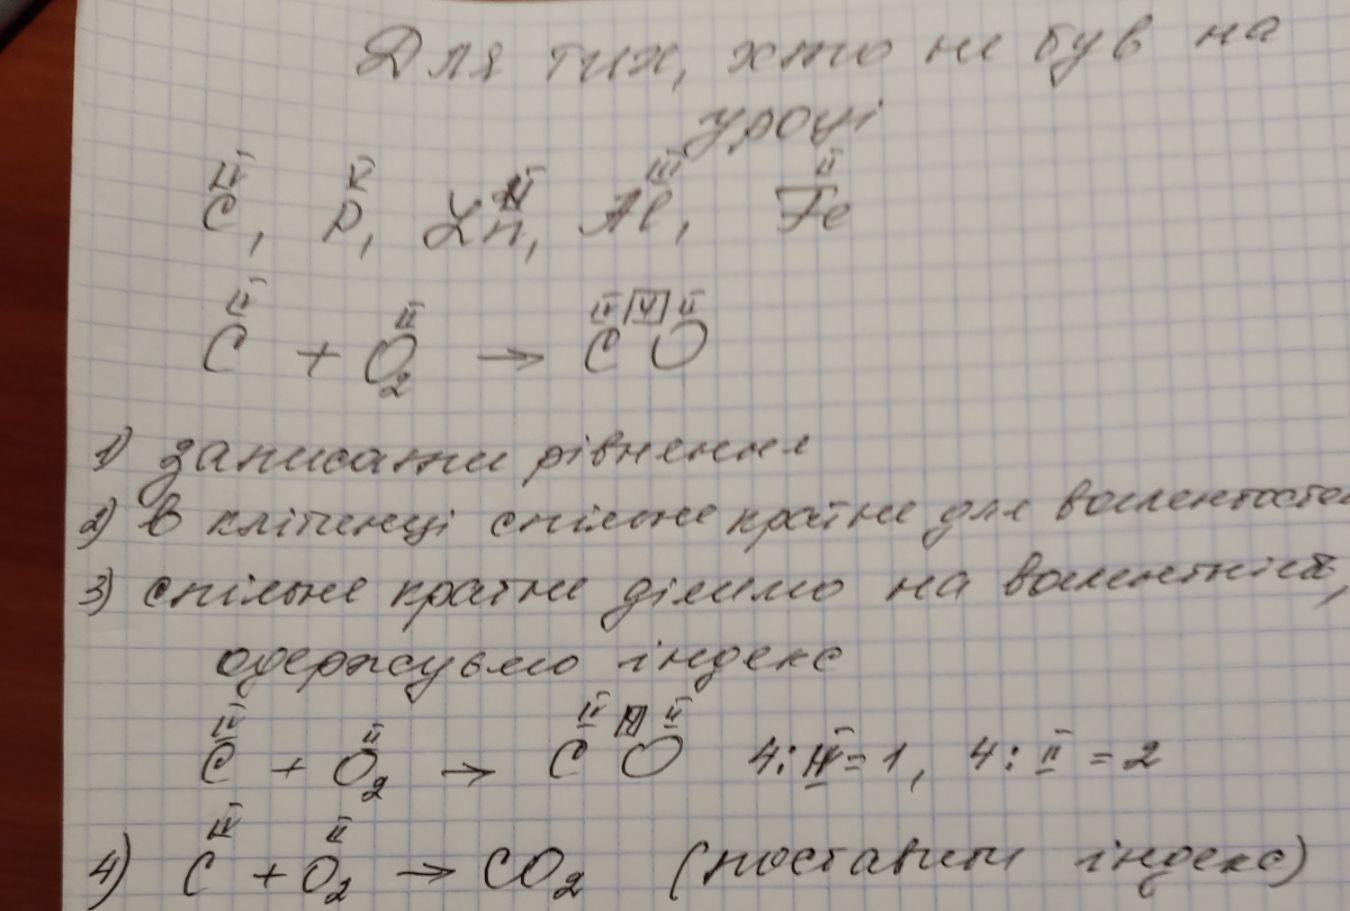 Для тих, хто не був на
уроці
IV V II III II
C, P, Zn, Al, Fe
IV II IV 4 II
C + O₂ → C O
1) записати рівняння
2) в клітинці спільне кратне для валентностей
3) спільне кратне ділимо на валентність,
одержуємо індекс
IV II IV 4 II
C + O₂ → C O 4 : IV = 1, 4 : II = 2
IV II
4) C + O₂ → CO₂ (поставити індекс)